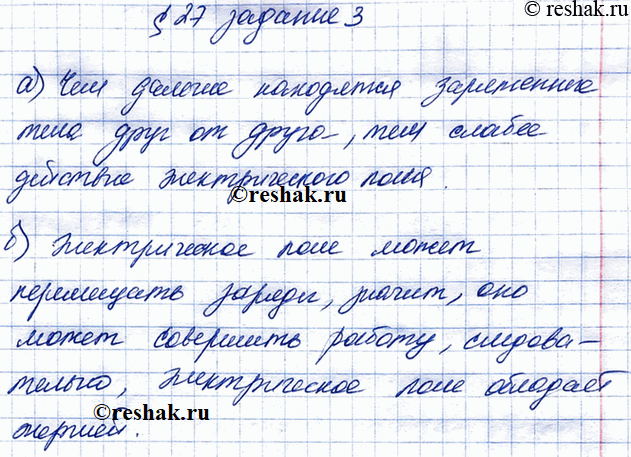 © reshak.ru
§27 задание 3
а) Чем далее находятся заряженные
тела друг от друга, тем слабее
действие электрического поля.
© reshak.ru
б) Электрическое поле может
перемещать заряды, значит, оно
может совершить работу, следова-
тельно, электрическое поле обладает
© reshak.ru
энергией.